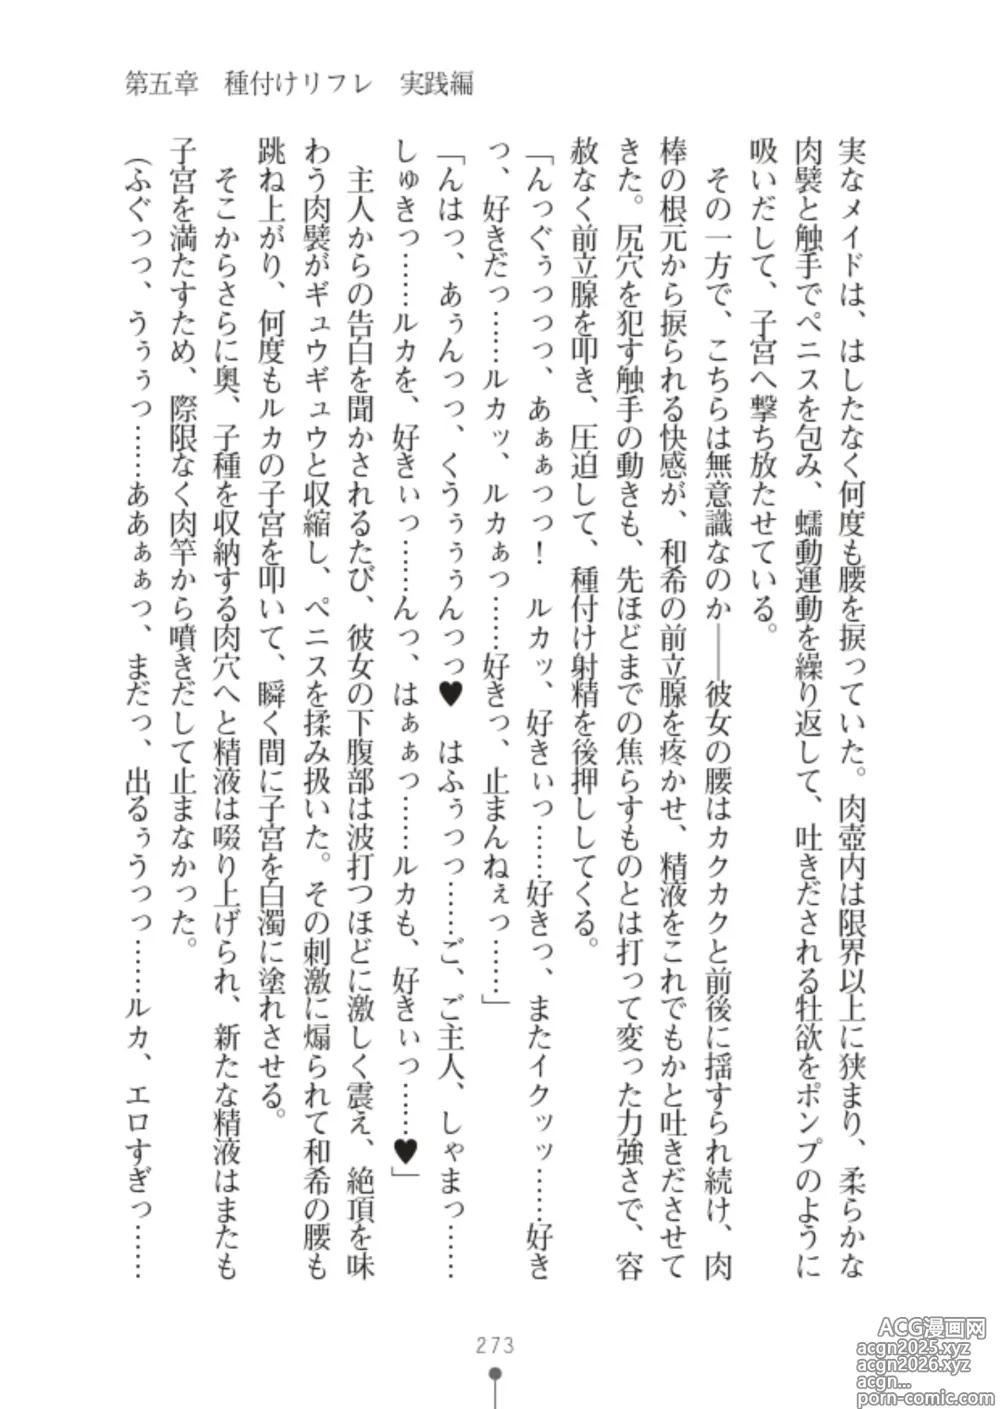 第五章　種付けリフレ　実践編
実なメイドは、はしたなく何度も腰を捩っていた。肉壺内は限界以上に狭まり、柔らかな
肉襞と触手でペニスを包み、蠕動運動を繰り返して、吐きだされる牡欲をポンプのように
吸いだして、子宮へ撃ち放たせている。
　その一方で、こちらは無意識なのか――彼女の腰はカクカクと前後に揺すられ続け、肉
棒の根元から捩られる快感が、和希の前立腺を疼かせ、精液をこれでもかと吐きださせて
きた。尻穴を犯す触手の動きも、先ほどまでの焦らすものとは打って変った力強さで、容
赦なく前立腺を叩き、圧迫して、種付け射精を後押ししてくる。
「んっぐぅっっっ、あぁぁっっ！　ルカッ、好きぃっ……好きっ、またイクッッ……好き
っ、好きだっ……ルカッ、ルカぁっ……好きっ、止まんねぇっ……」
「んはっ、あぅんっっ、くうぅぅぅんっっ♥　はふぅっっ……ご、ご主人、しゃまっ……
しゅきっ……ルカを、好きぃっ……んっ、はぁぁっ……ルカも、好きぃっ……♥」
　主人からの告白を聞かされるたび、彼女の下腹部は波打つほどに激しく震え、絶頂を味
わう肉襞がギュウギュウと収縮し、ペニスを揉み扱いた。その刺激に煽られて和希の腰も
跳ね上がり、何度もルカの子宮を叩いて、瞬く間に子宮を白濁に塗れさせる。
　そこからさらに奥、子種を収納する肉穴へと精液は啜り上げられ、新たな精液はまたも
子宮を満たすため、際限なく肉竿から噴きだして止まなかった。
（ふぐっっ、うぅぅっ……ああぁぁっ、まだっ、出るぅうっっ……ルカ、エロすぎっ……
273
ACG漫画网
acgn2025.xyz
acgn2026.xyz
acgn...
porn-comic.com